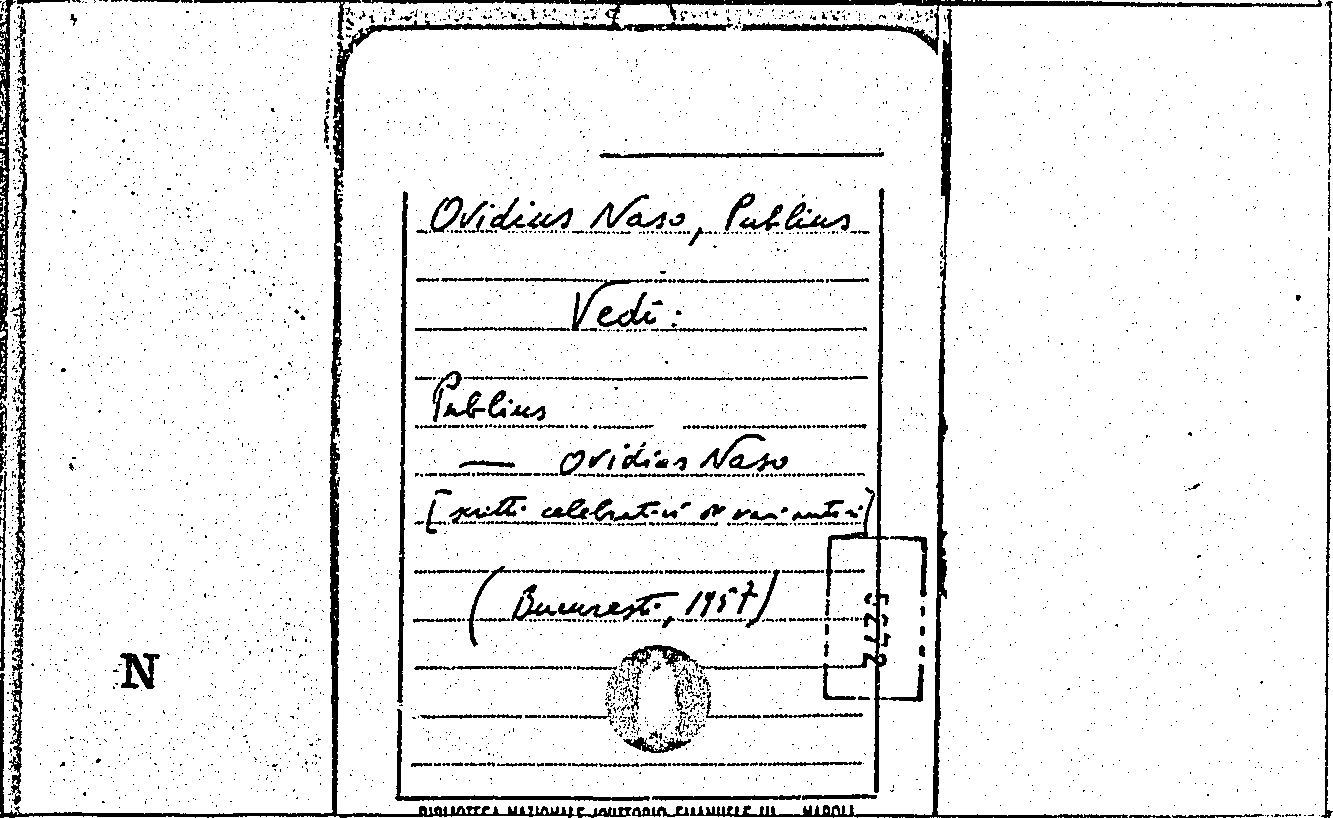 Ovidius Naso, Publius
Vedi:
Publius
— Ovidius Naso
[scritti celebrativi di vari autori]
(Bucuresti, 1957)
N
BIBLIOTECA NAZIONALE "VITTORIO EMANUELE III" - NAPOLI